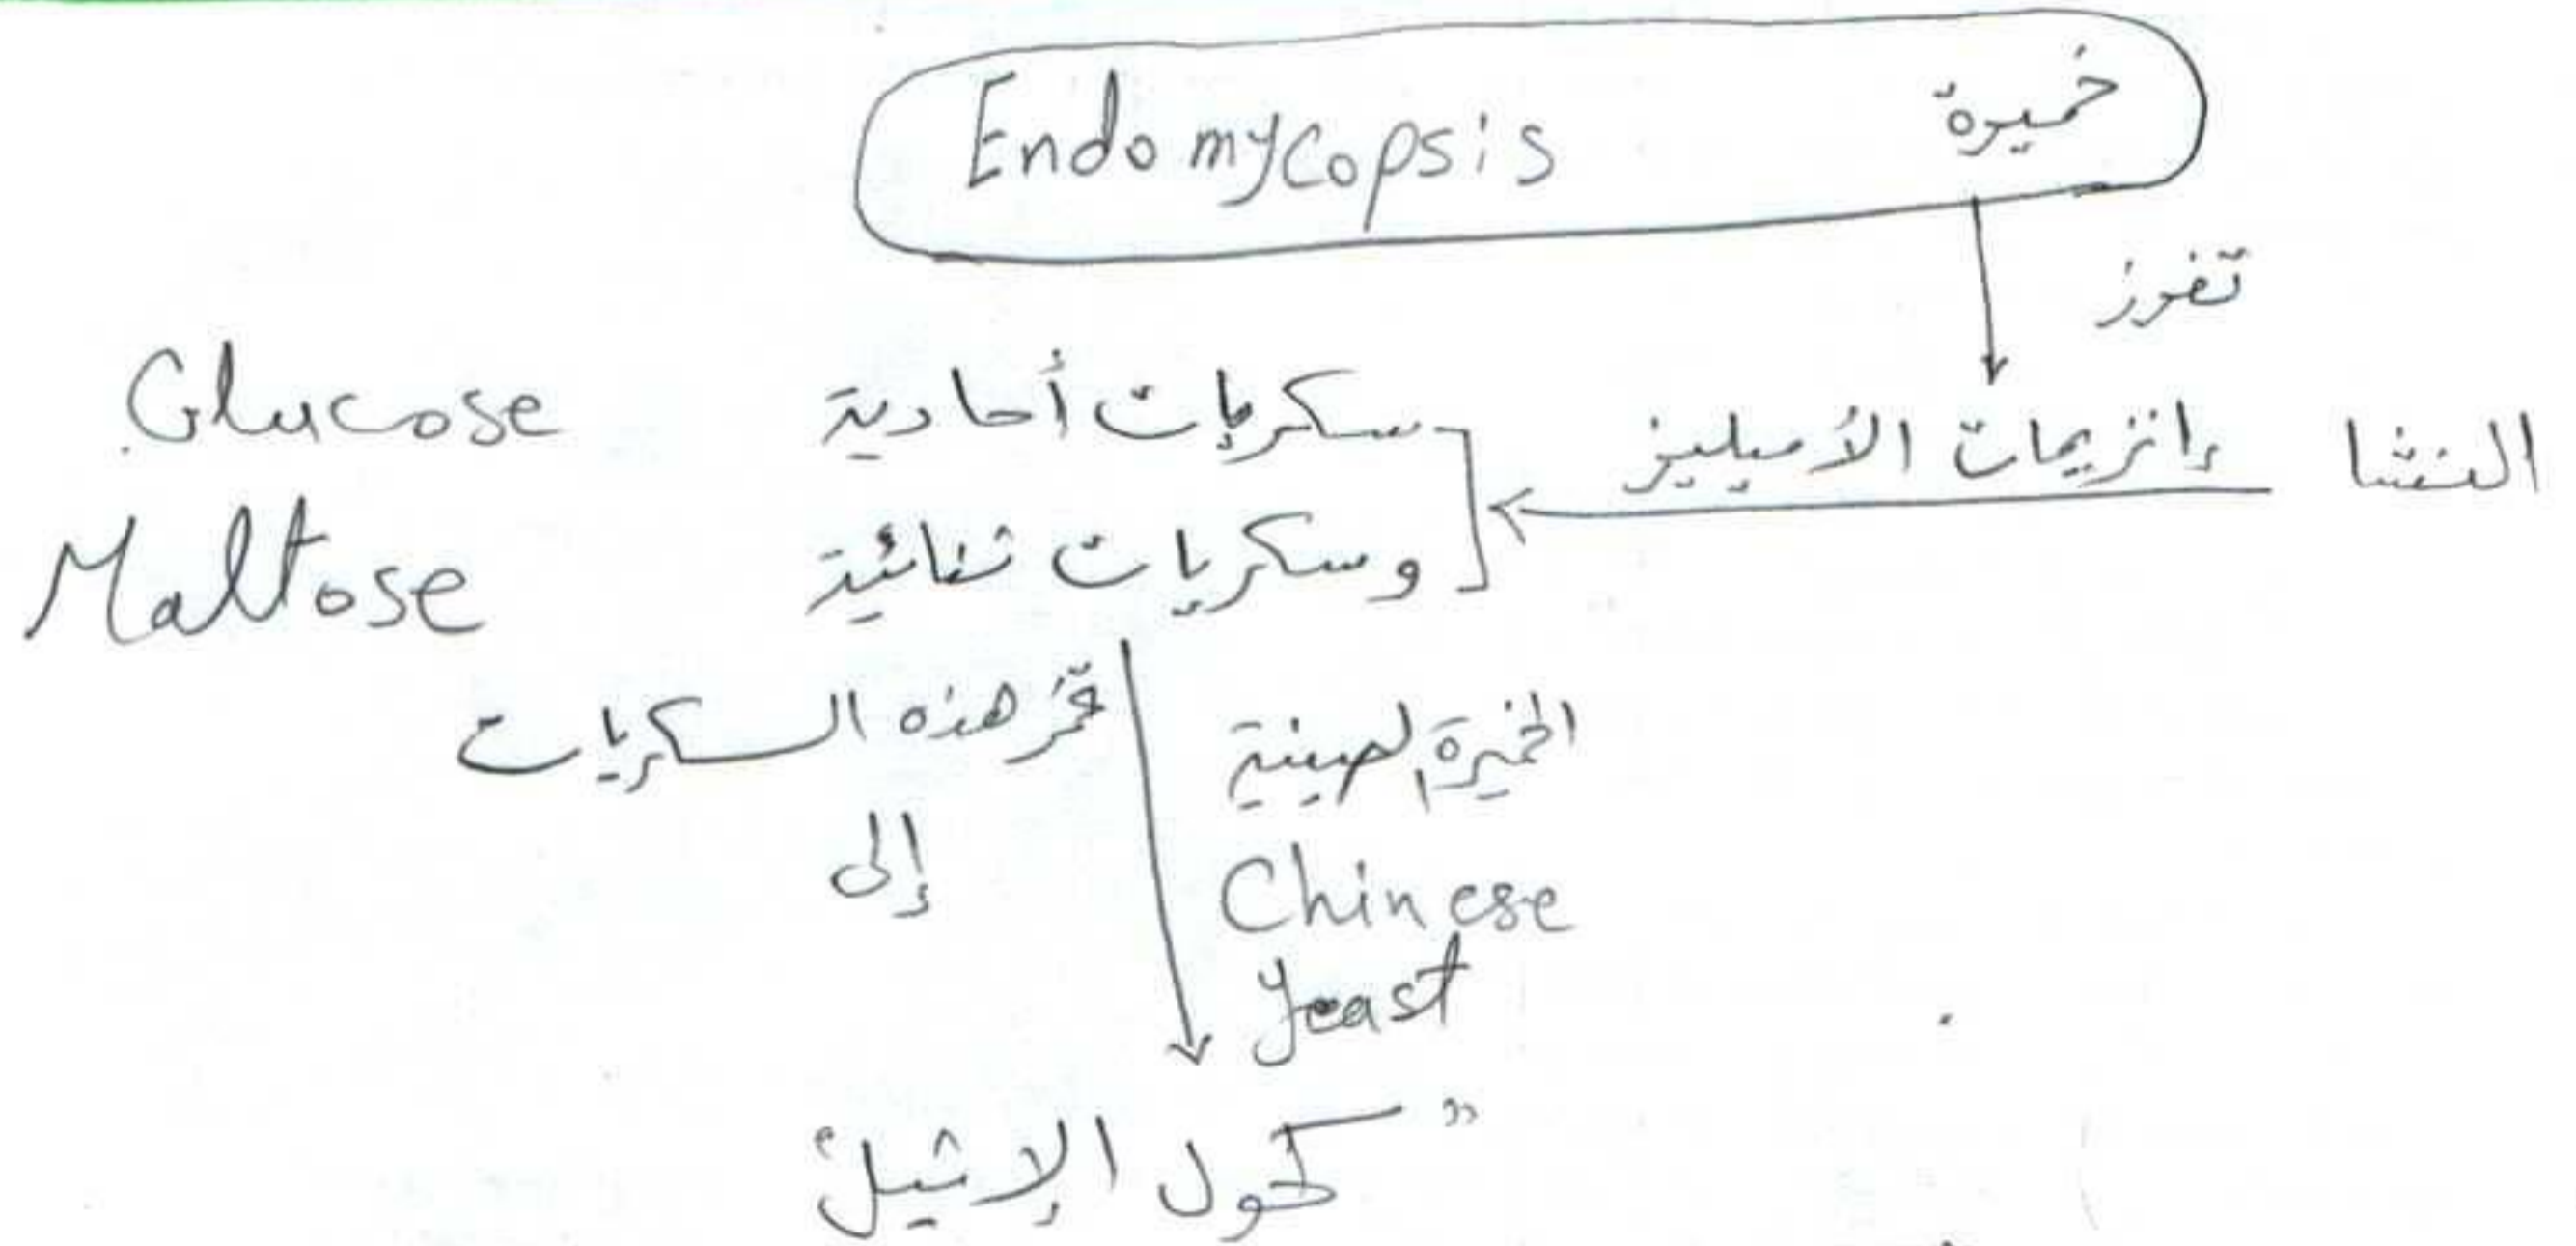 خميرة Endomycopsis
تفرز
النشا إنزيمات الأميليز
سكريات أحادية Glucose
وسكريات ثنائية Maltose
الخميرة الصينية
تخمر هذه السكريات
إلى
Chinese
yeast
"كحول الإثيل"